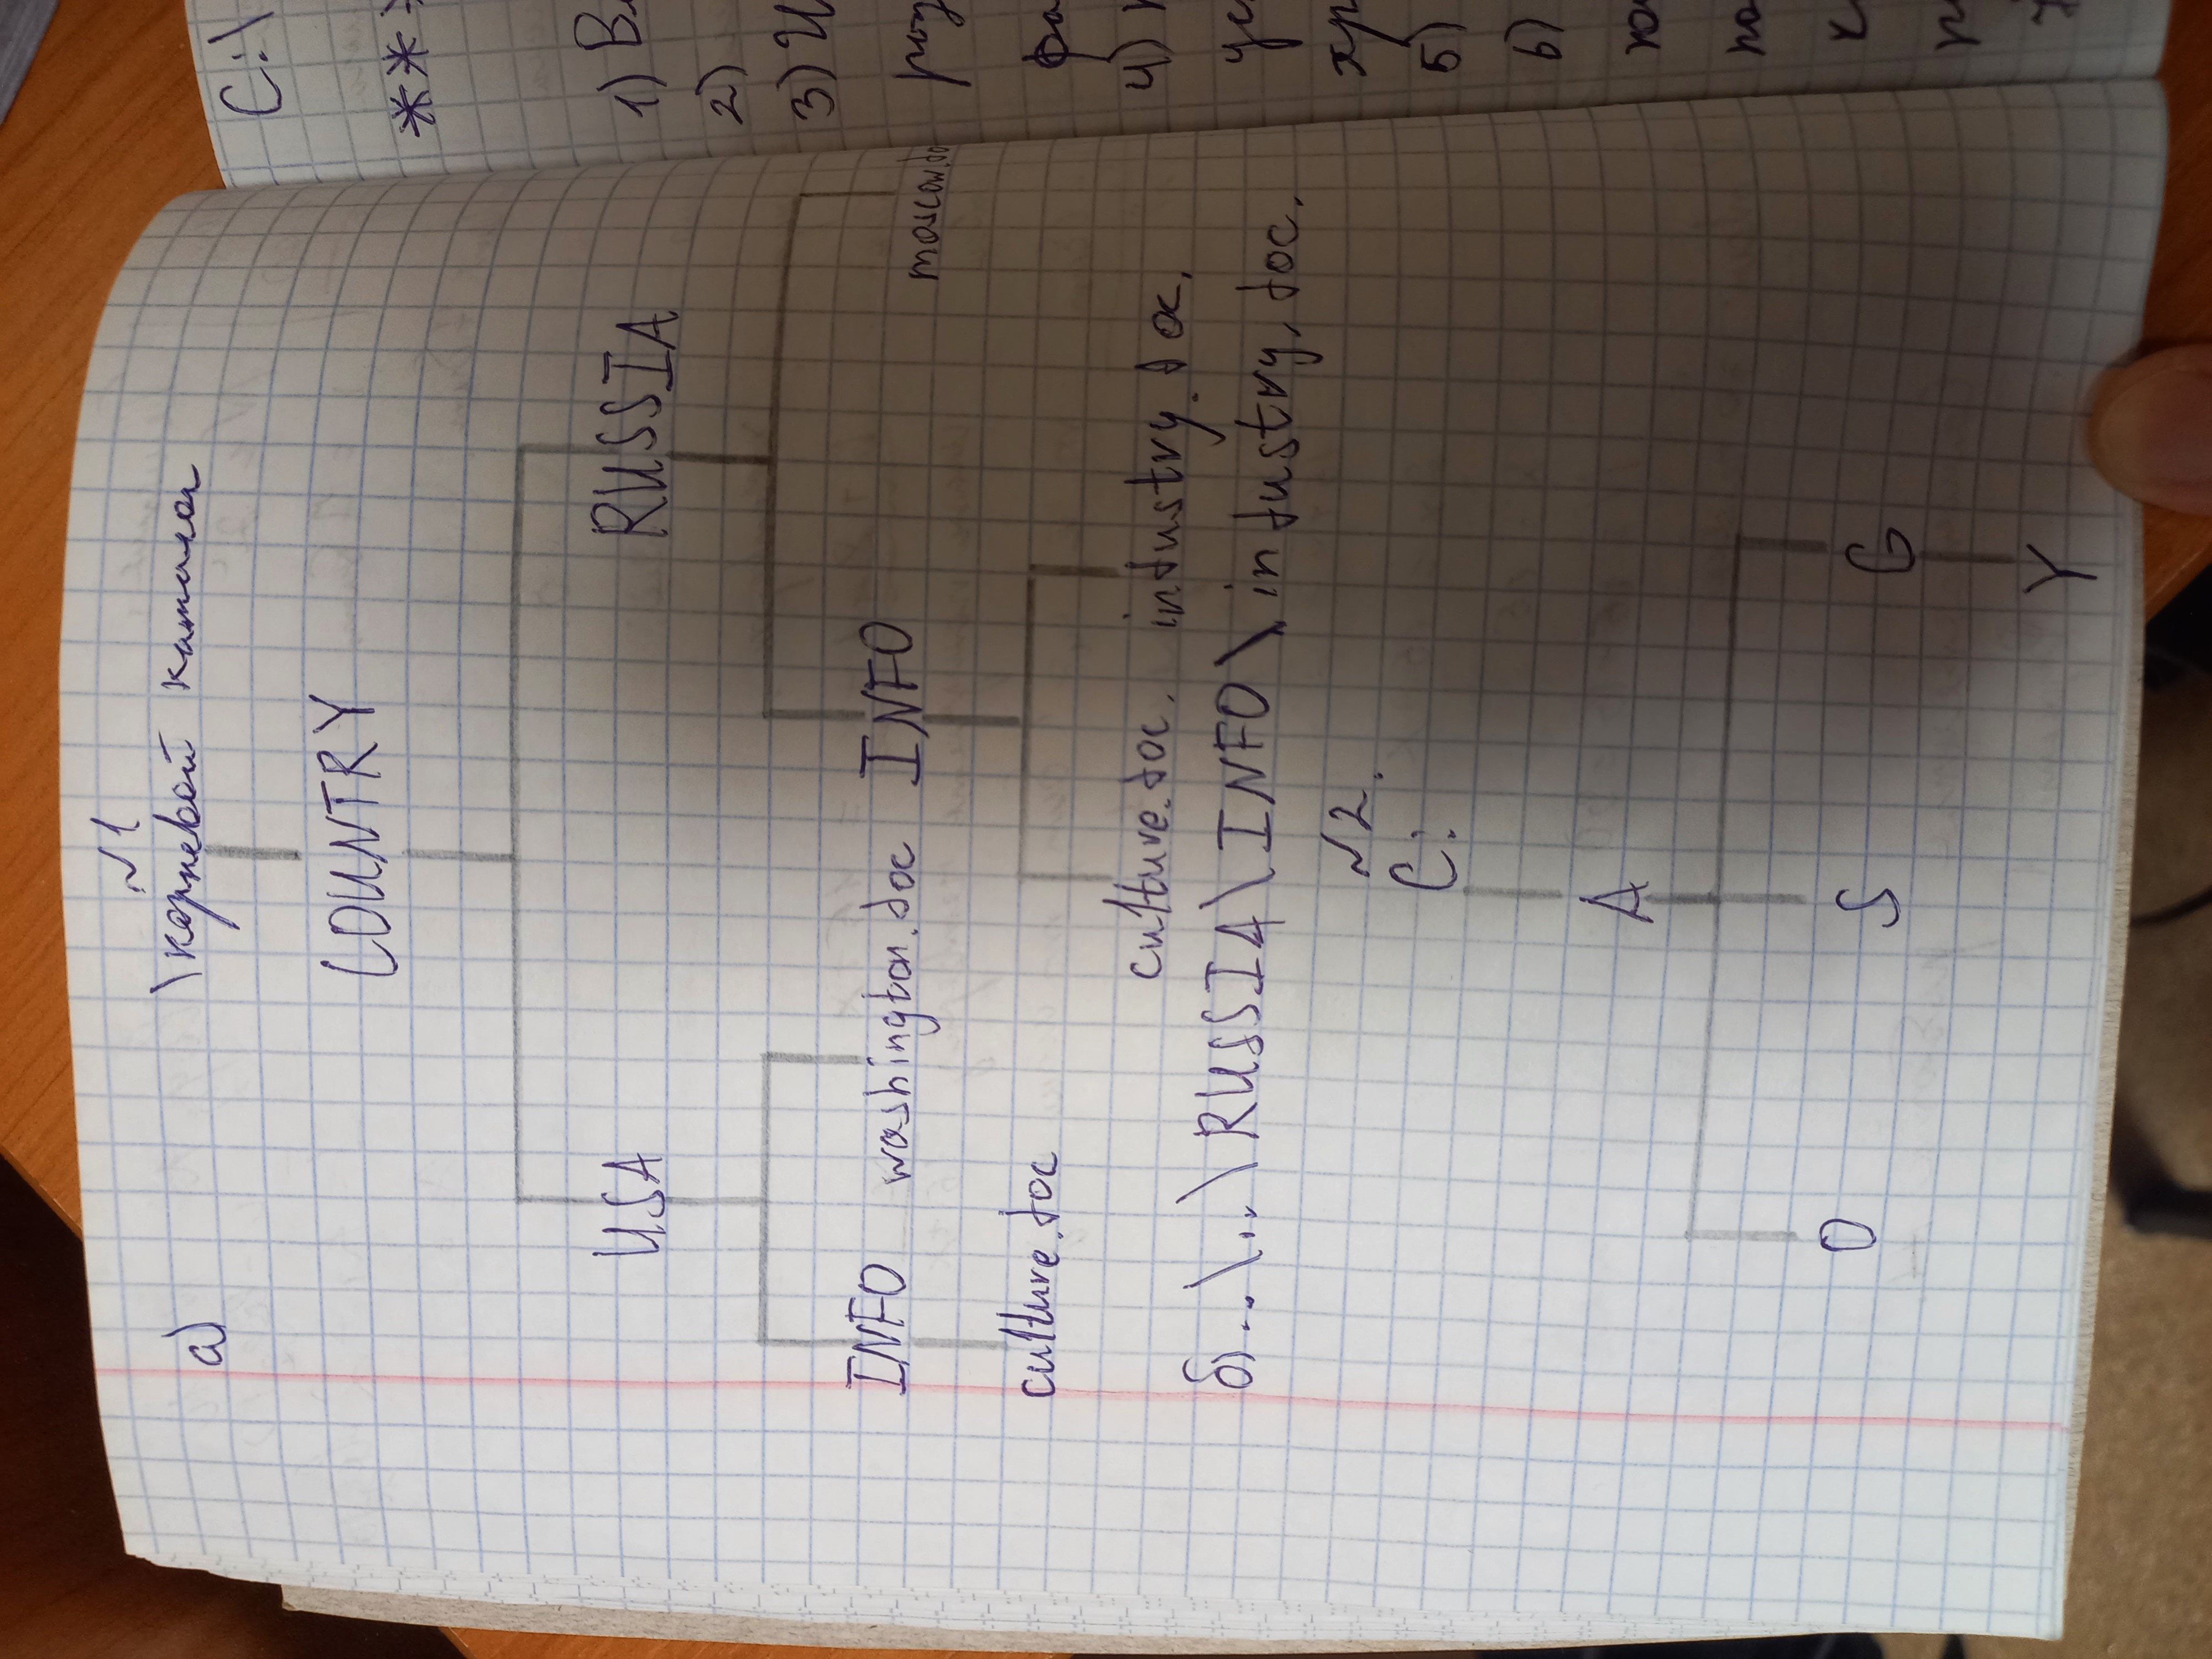 №1
а) \корневой каталог
COUNTRY
USA RUSSIA
INFO washington.doc INFO moscow.do
culture.doc
culture.doc. industry.doc.
б) ..\..\RUSSIA\INFO\industry.doc.
№2.
C:
A
O S G
Y
C:\
**
1) В
2)
3) И
ра
4)
ус
хр
5)
6)
по